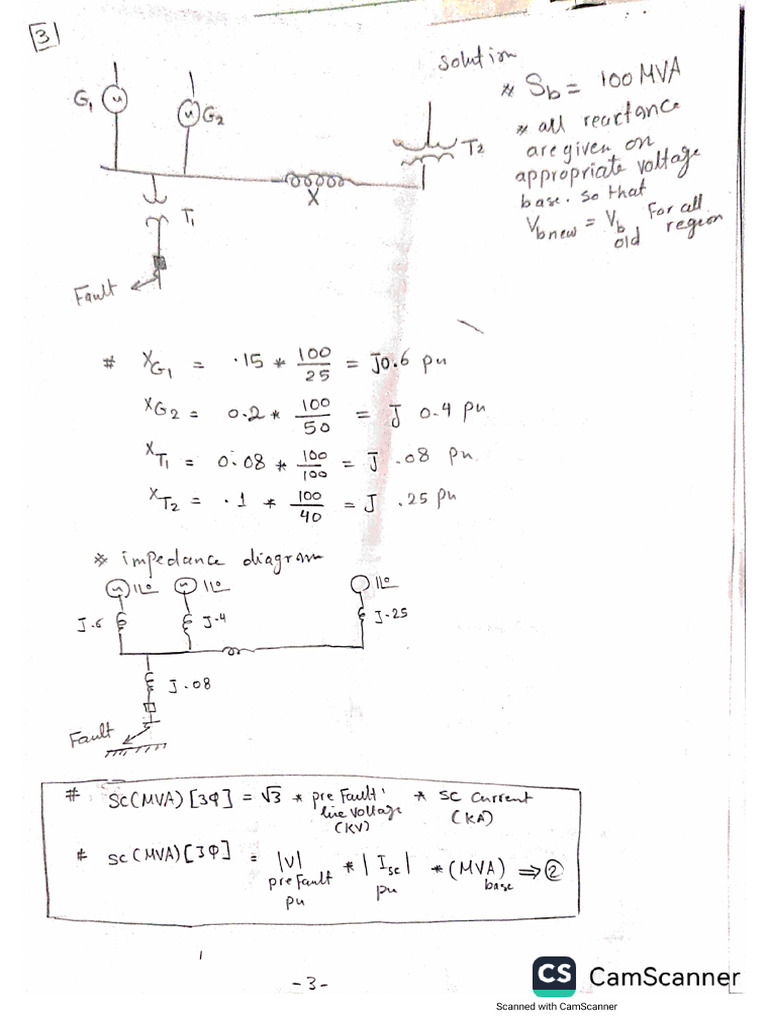 3
solution
* Sb = 100 MVA
* all reactance
are given on
appropriate voltage
base. so that
Vbnew = Vb old For all region
G1
G2
T2
X
T1
Fault
# XG1 = .15 * 100/25 = J0.6 pu
XG2 = 0.2 * 100/50 = J 0.4 pu
XT1 = 0.08 * 100/100 = J .08 pu.
XT2 = .1 * 100/40 = J .25 pu
* impedance diagram
1∠0 1∠0 1∠0
J.6 J.4 J.25
J.08
Fault
# SC(MVA)[3φ] = √3 * pre Fault line voltage (KV) * SC Current (KA)
# SC(MVA)[3φ] = |V| pre Fault pu * |Isc| pu * (MVA) base ⇒ ②
-3-
CS CamScanner
Scanned with CamScanner